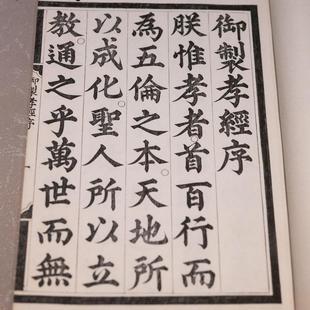 御製孝經序
朕惟孝者首百行而
為五倫之本天地所
以成化聖人所以立
教通之乎萬世而無
御製孝經序